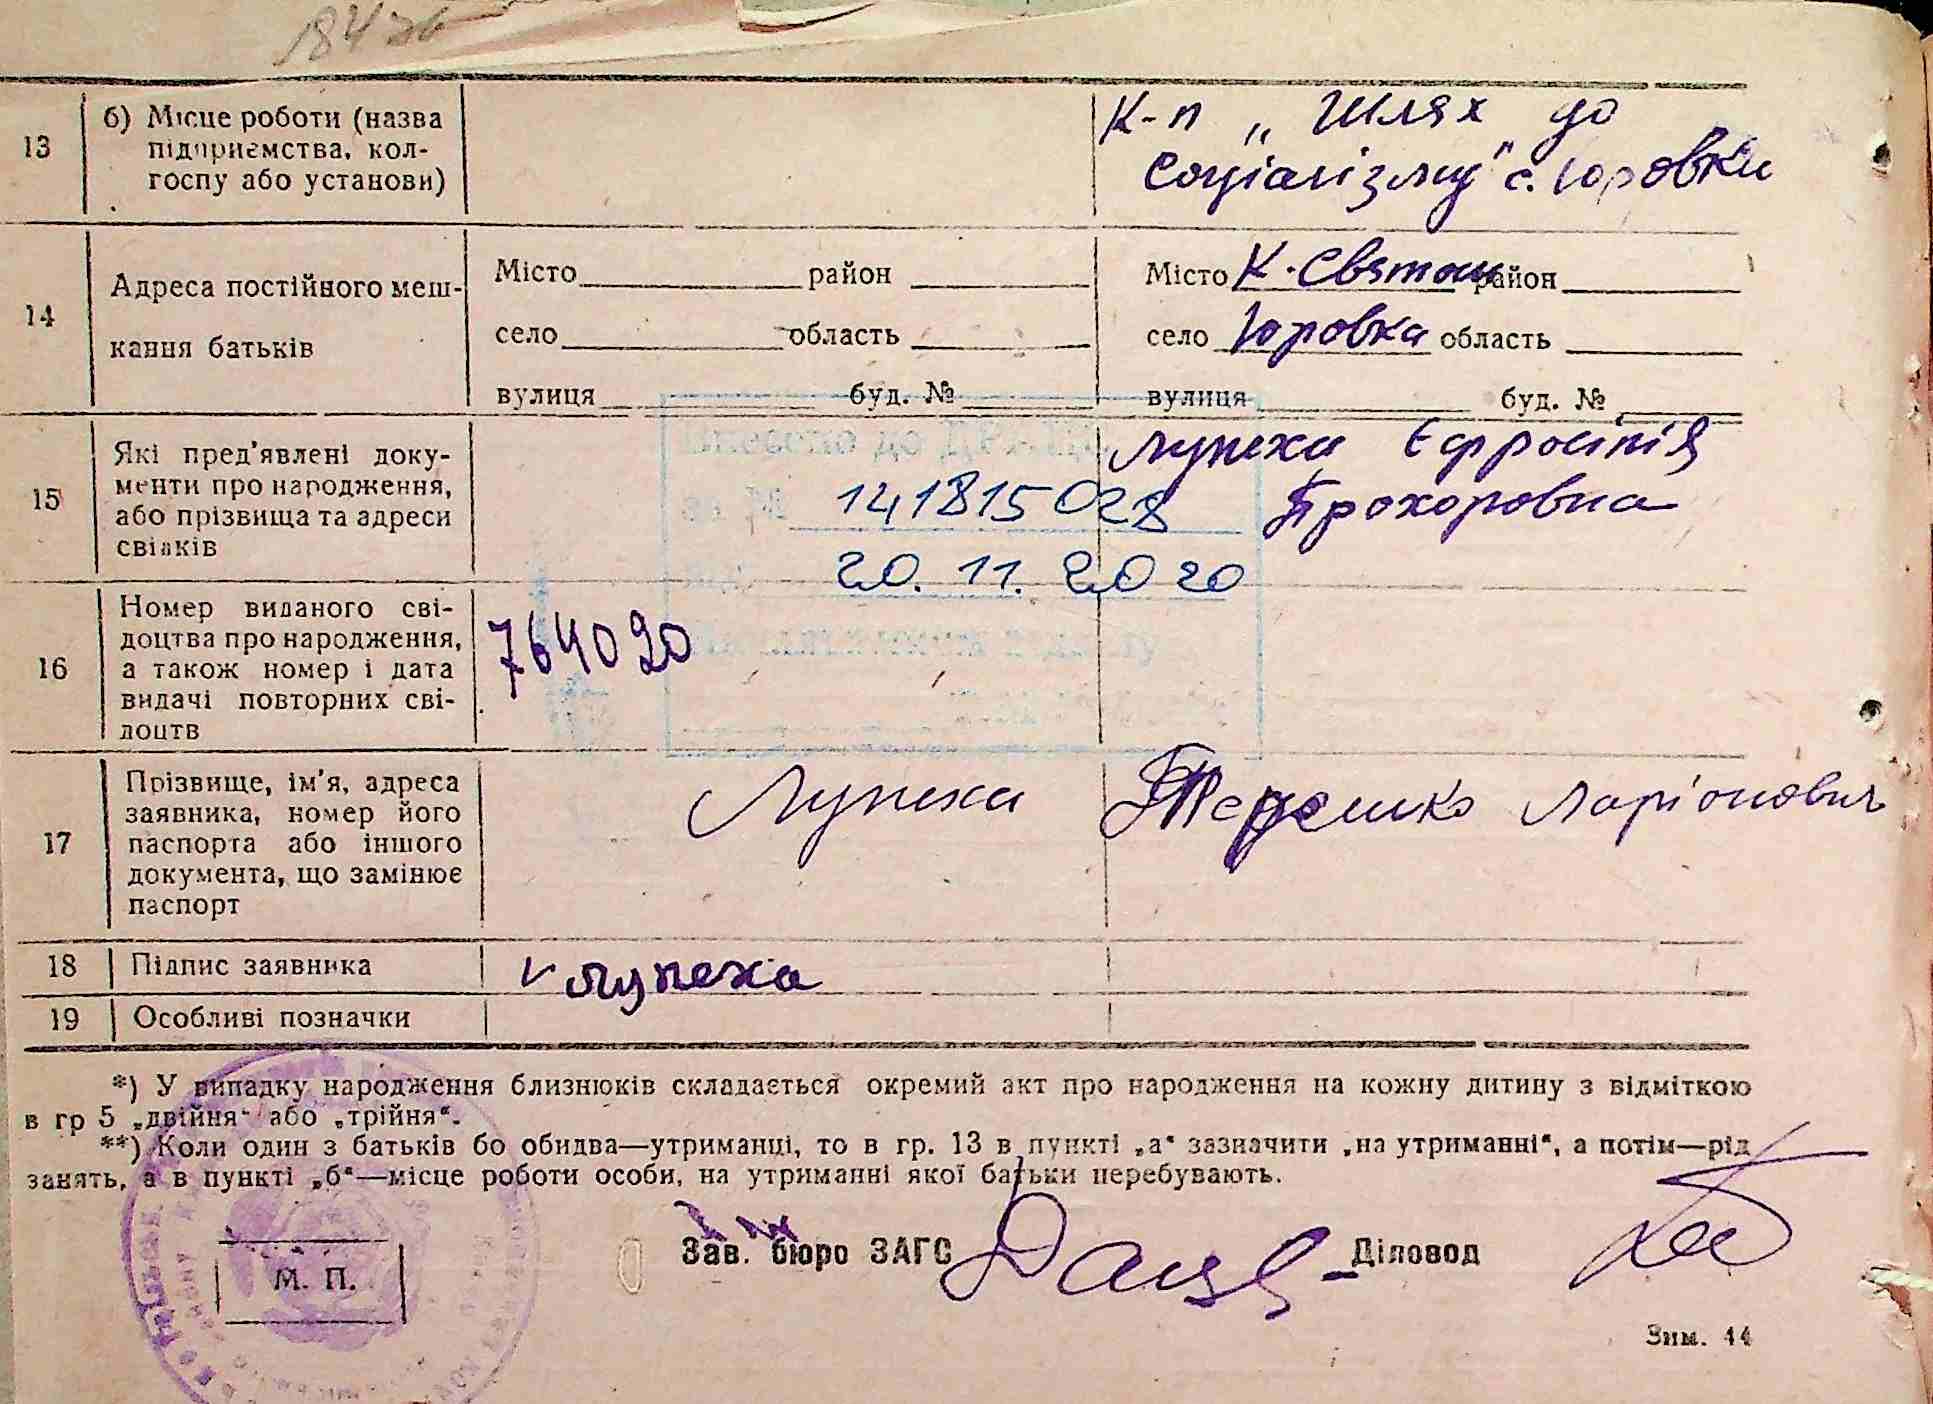 184 зв
13
б) Місце роботи (назва
підприємства, кол-
госпу або установи)
К-п „Шлях до
Соціалізму" с. Юровки
14
Адреса постійного меш-
кання батьків
Місто район
село область
вулиця буд. №
Місто К-Святош район
село Юровка область
вулиця буд. №
15
Які пред'явлені доку-
менти про народження,
або прізвища та адреси
свідків
Внесено до ДРАЦС
за № 141815028
20.11.2020
Лупеха Єфросінія
Прохоровна
16
Номер виданого сві-
доцтва про народження,
а також номер і дата
видачі повторних сві-
доцтв
764020
17
Прізвище, ім'я, адреса
заявника, номер його
паспорта або іншого
документа, що замінює
паспорт
Лупеха Терешко Ларіонович
18
Підпис заявника
v Лупеха
19
Особливі позначки
*) У випадку народження близнюків складається окремий акт про народження на кожну дитину з відміткою
в гр 5 „двійня" або „трійня".
**) Коли один з батьків бо обидва—утриманці, то в гр. 13 в пункті „а" зазначити „на утриманні", а потім—рід
занять, а в пункті „б"—місце роботи особи, на утриманні якої батьки перебувають.
Зав. бюро ЗАГС
Діловод
М. П.
Зим. 44